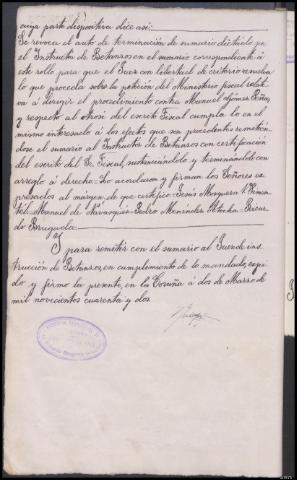 cuya parte dispositiva dice así:
Se revoca el auto de terminación de sumario dictado por
el Instructor de Betanzos en el sumario correspondiente á
este rollo para que el Juez con libertad de criterio resuelva
lo que proceda sobre la petición del Ministerio fiscal relati-
va á dirigir el procedimiento contra Manuel
y respecto al otrosí del escrito fiscal cumpla lo en el
mismo interesado á los efectos que sean procedentes remitién-
dose el sumario al Instructor de Betanzos con certificación
del escrito del Sr. Fiscal, sustanciándolo y terminándolo con
arreglo á derecho. Lo acordaron y firman los Señores ex-
presados al margen de que certifico. Jesús Marquina
Manuel de Pedro Menéndez Ricar-
do Brugada.
Y para remitir con el sumario al Juez de ins-
trucción de Betanzos, en cumplimiento de lo mandado, expi-
do y firmo la presente, en la Coruña á dos de Marzo de
mil novecientos cuarenta y dos.